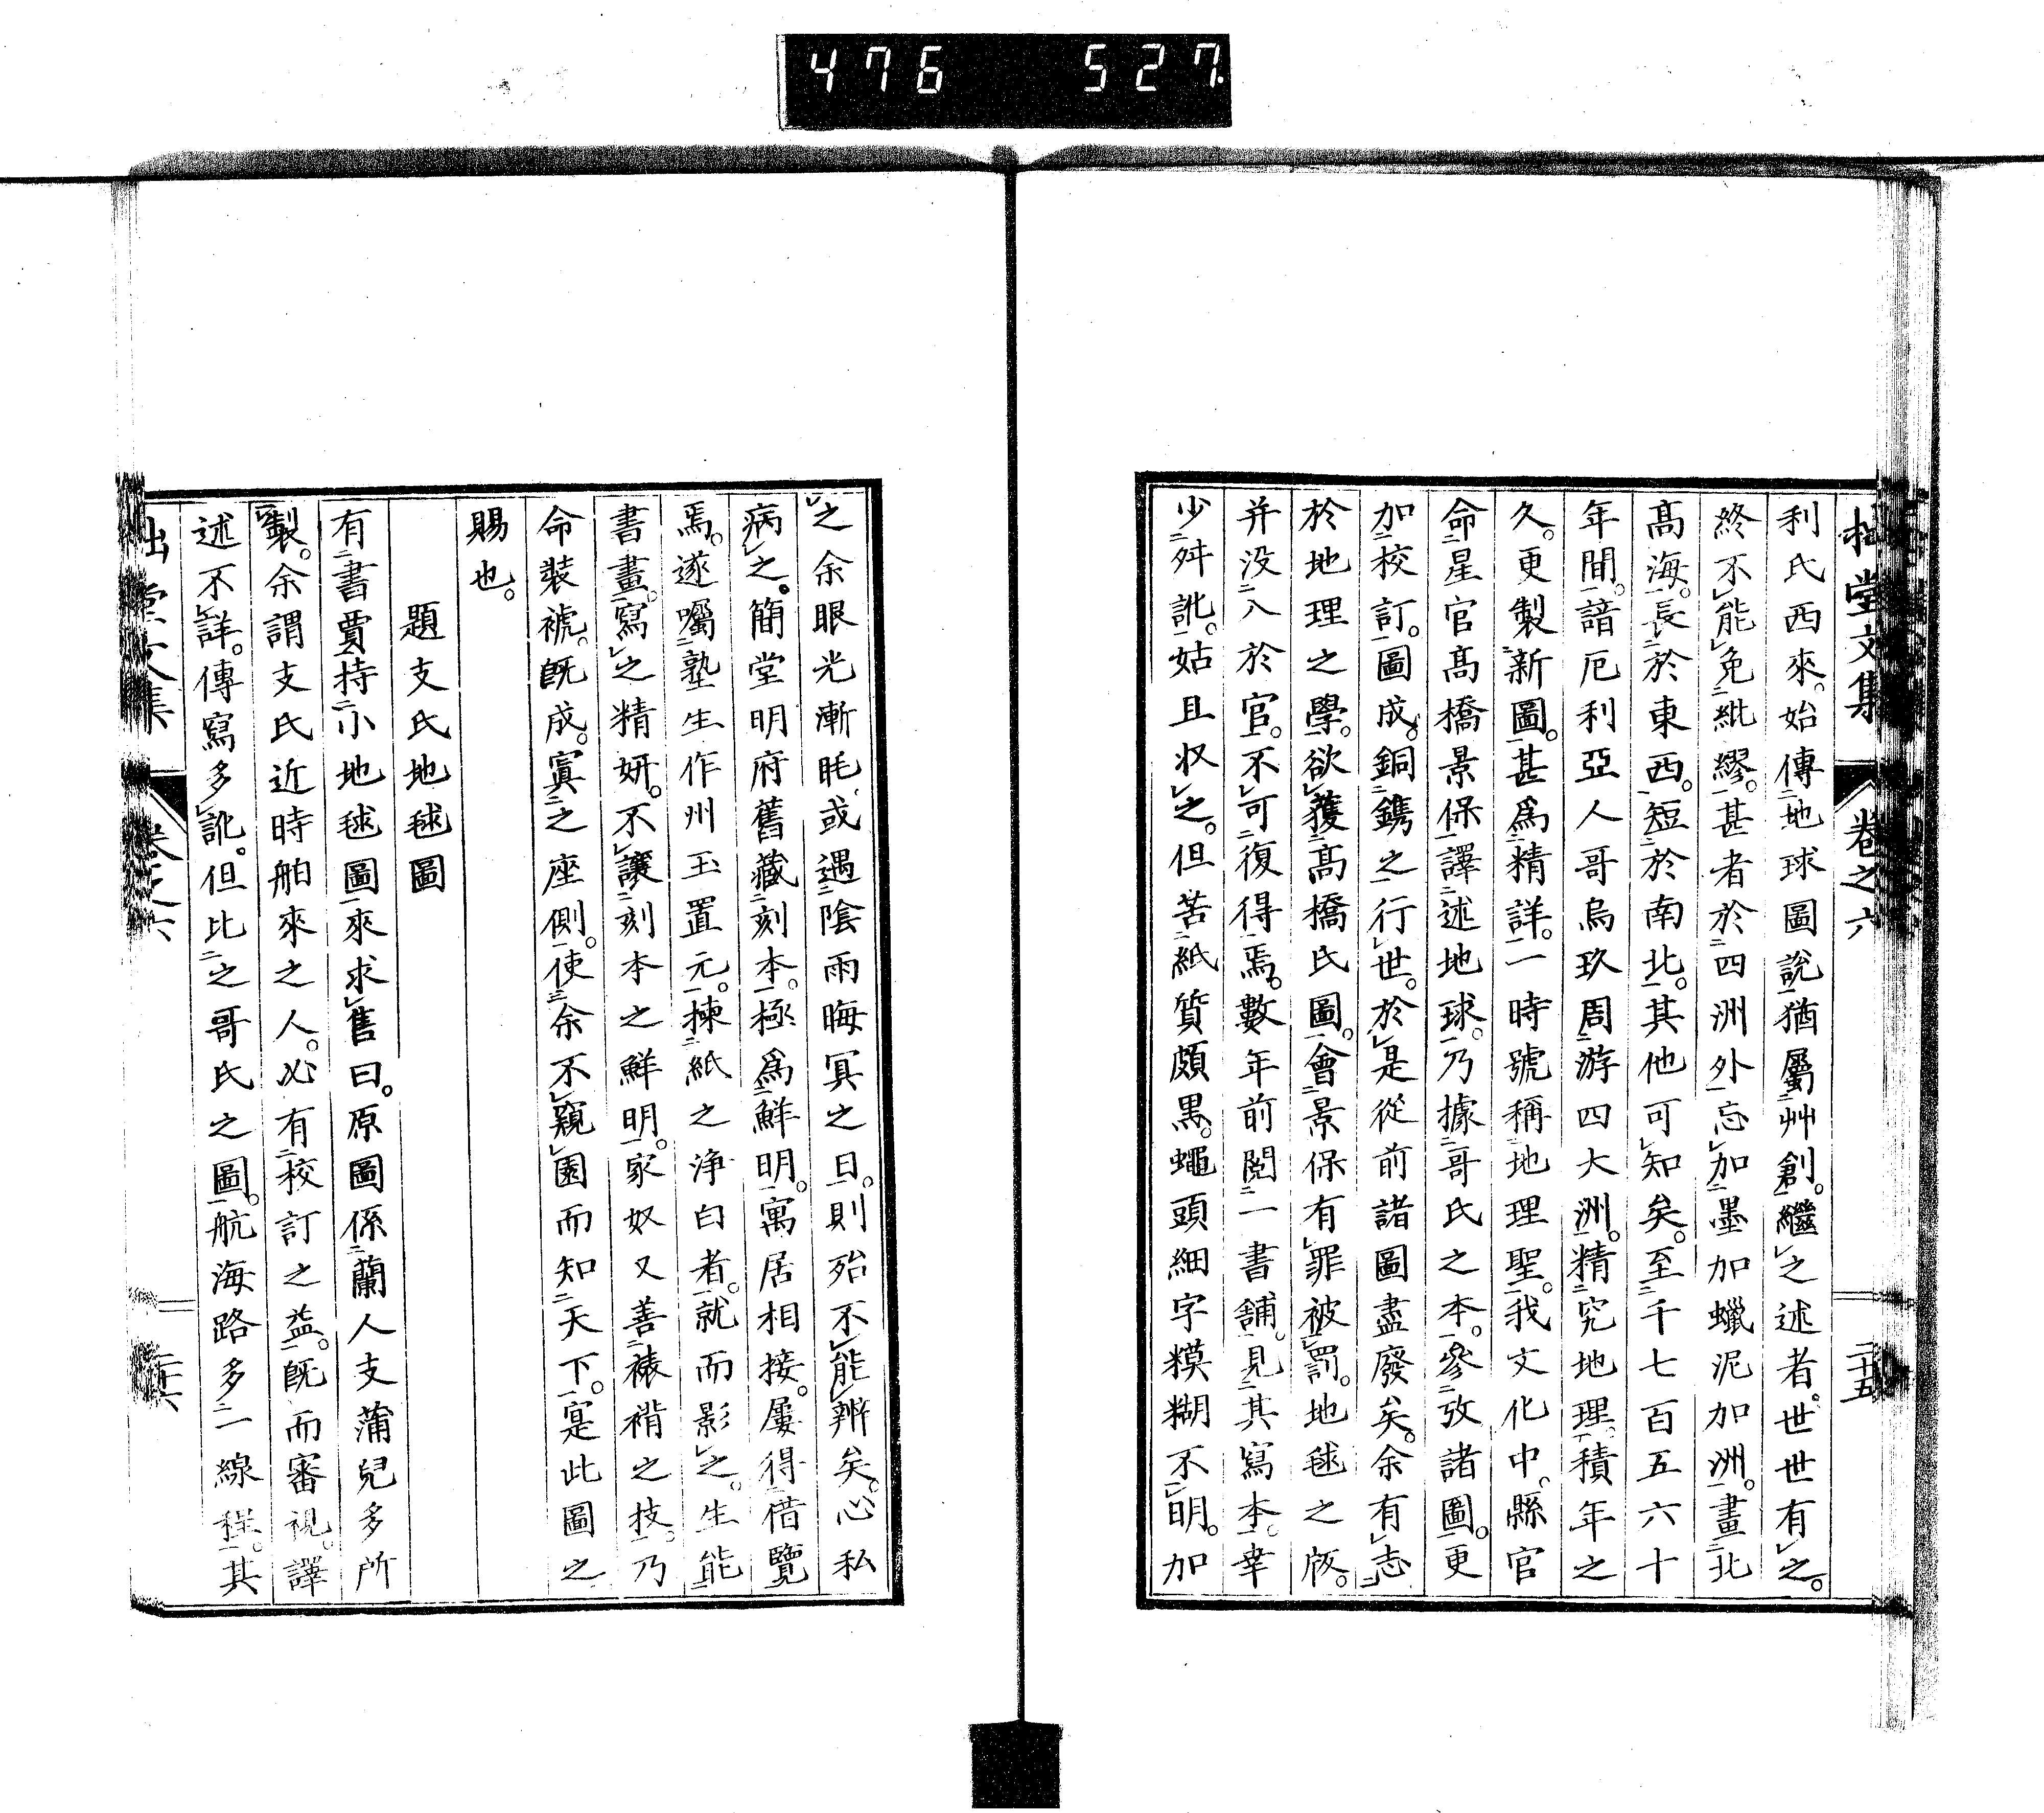 476 527
拙堂文集 卷之六 二十五
利氏西來。始傳地球圖説。猶屬艸創。繼之述者。世世有之。
終不能免紕繆。甚者於四洲外。忘加墨加蠟泥加洲。畫北
髙海。長於東西。短於南北。其他可知矣。至千七百五六十
年間。諳厄利亞人哥烏玖周游四大洲。精究地理。積年之
久。更製新圖。甚爲精詳。一時號稱地理聖。我文化中。縣官
命星官髙橋景保。譯述地球。乃據哥氏之本。參攷諸圖。更
加校訂。圖成。銅鐫之行世。於是從前諸圖盡廢矣。余有志
於地理之學。欲獲髙橋氏圖。會景保有罪被罰。地毬之版。
并没入於官。不可復得焉。數年前閲一書舗。見其寫本。幸
少舛訛。姑且収之。但苦紙質頗黒。蠅頭細字糢糊不明。加
之余眼光漸眊。或遇陰雨晦冥之日。則殆不能辨矣。心私
病之。簡堂明府舊藏刻本。極爲鮮明。寓居相接。屢得借覽
焉。遂囑塾生作州玉置元。揀紙之浄白者。就而影之。生能
書畫。寫之精妍。不讓刻本之鮮明。家奴又善裱褙之技。乃
命装褫。既成。寘之座側。使余不窺園而知天下。寔此圖之
賜也。
題支氏地毬圖
有書賈持小地毬圖來求售曰。原圖係蘭人支蒲兒多所
製。余謂支氏近時舶來之人。必有校訂之益。既而審視。譯
述不詳。傳寫多訛。但比之哥氏之圖。航海路多一線程。其
拙堂文集 卷之六 二十六